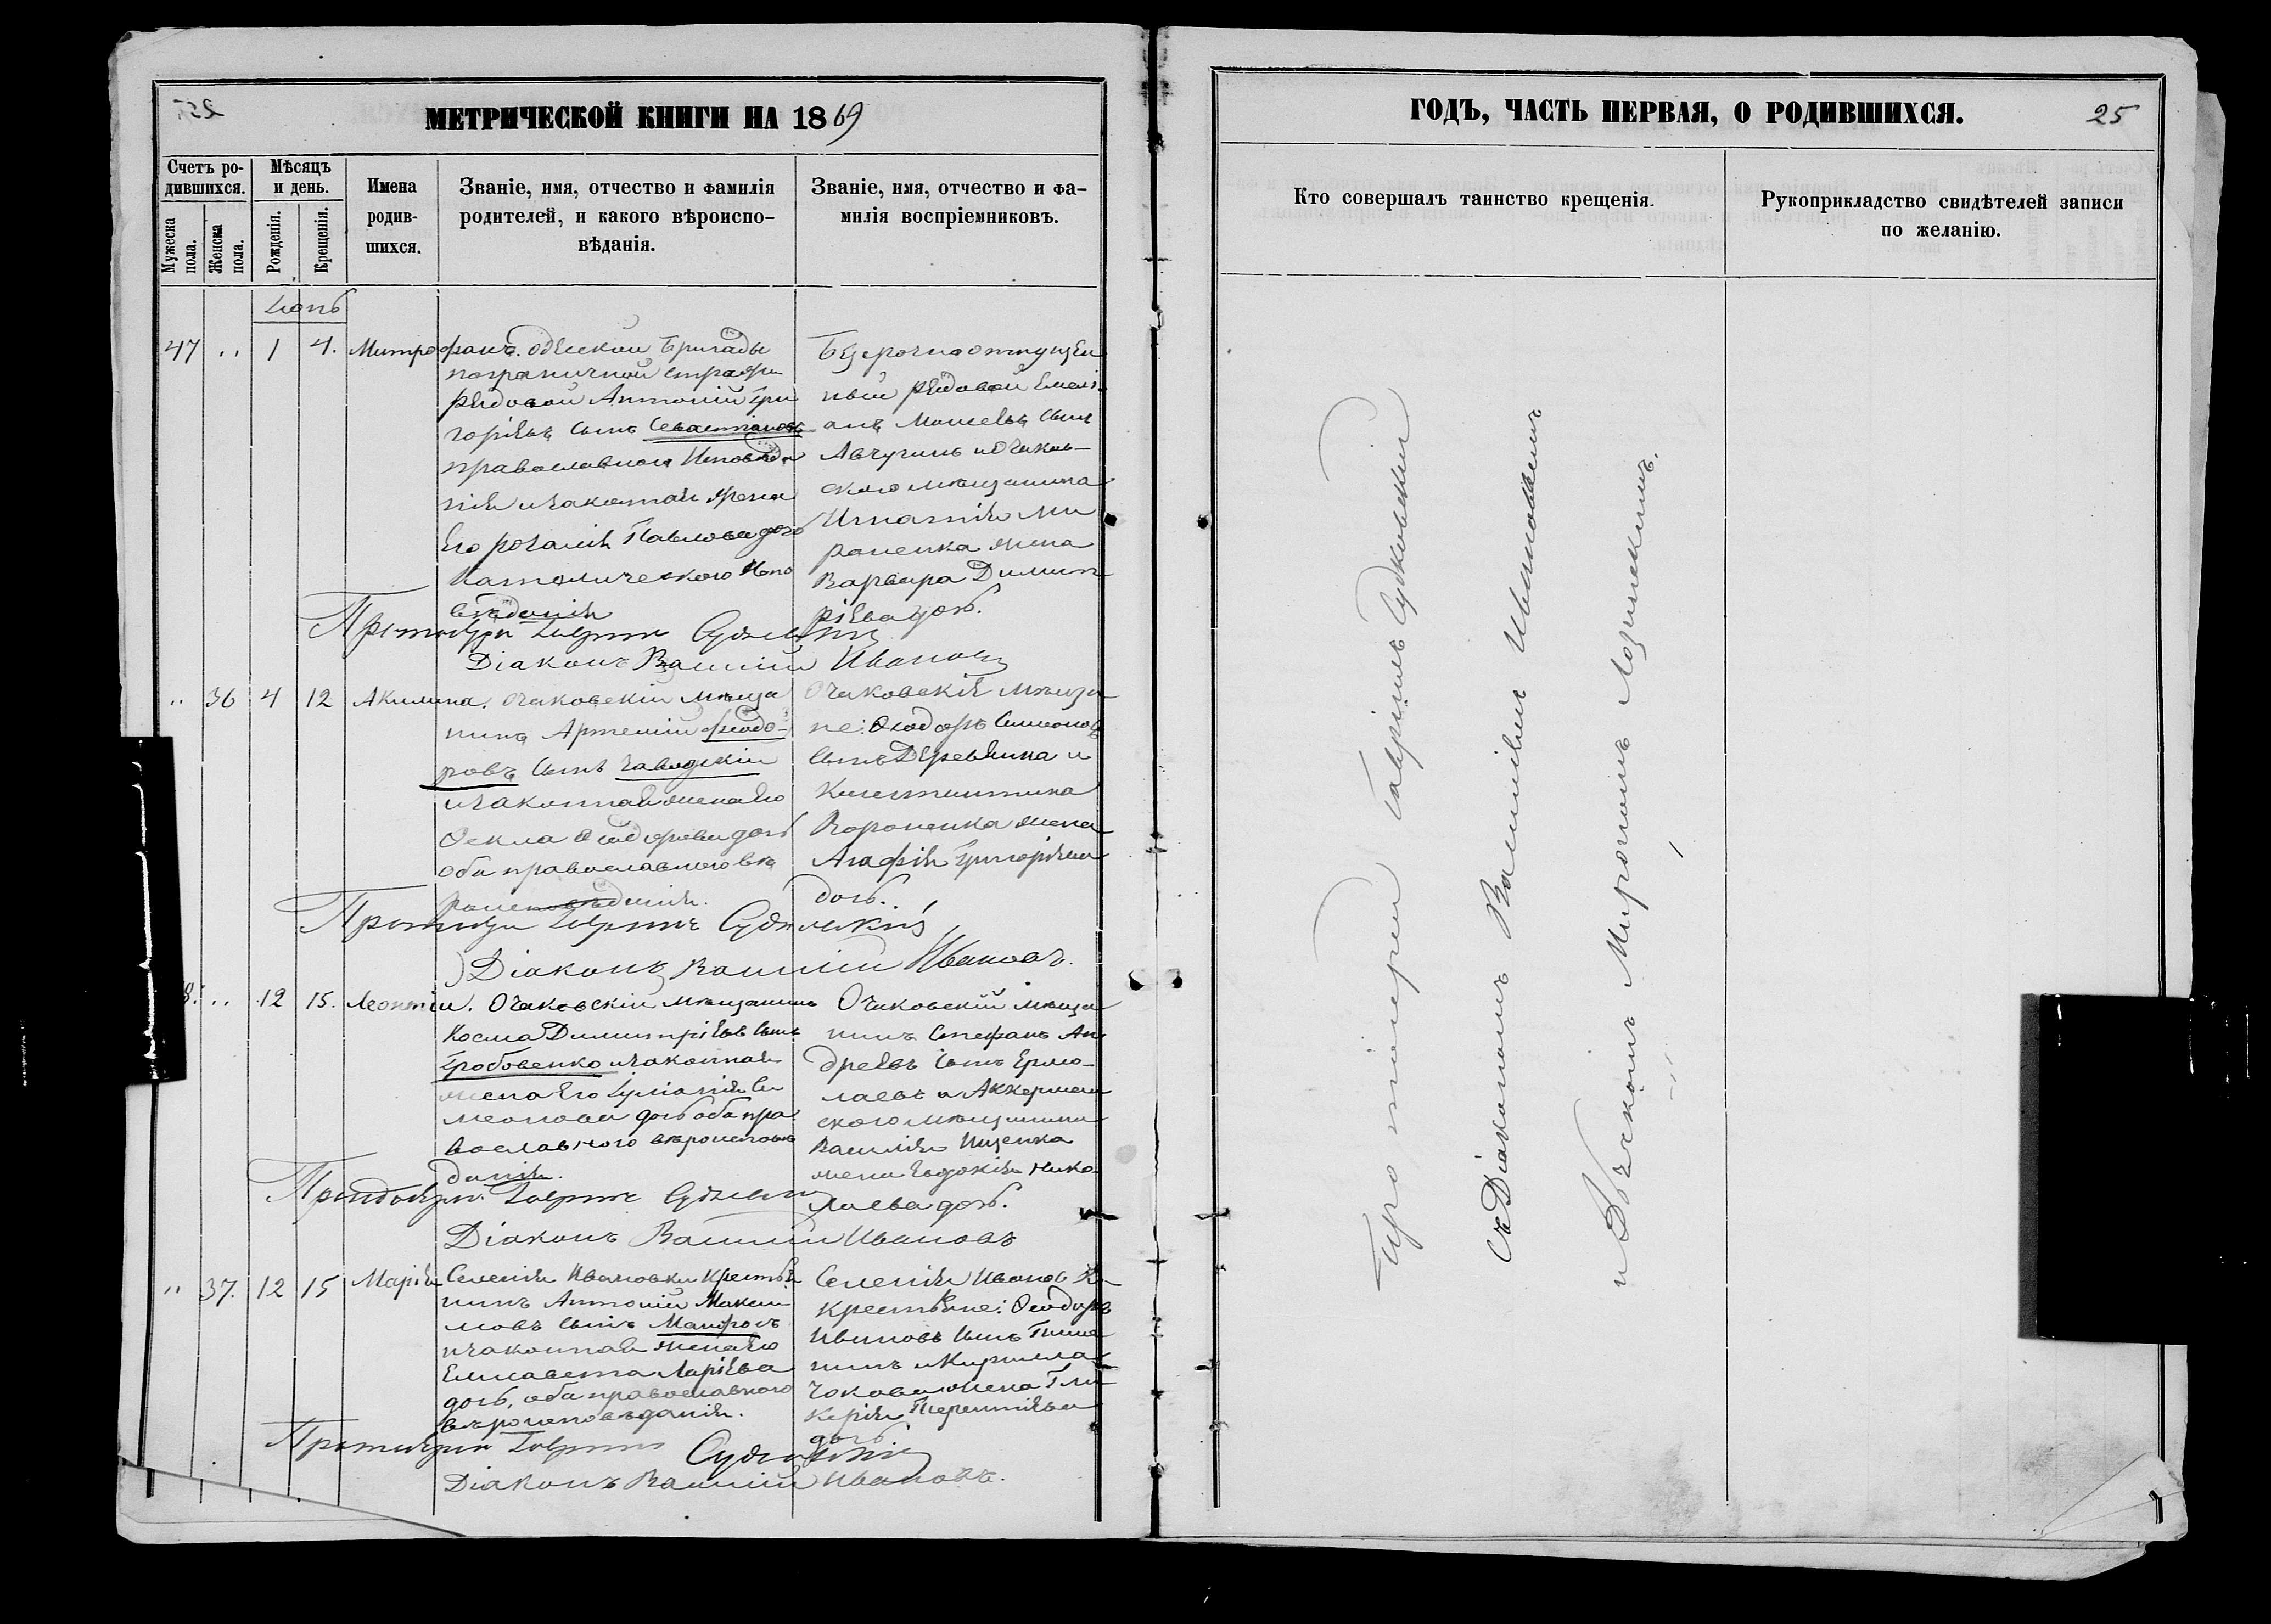 МЕТРИЧЕСКОЙ КНИГИ НА 1869
Счетъ ро-
дившихся.
Мужеска
пола.
Женска
пола.
Мѣсяцъ
и день.
Рожденія.
Крещенія.
Имена
родив-
шихся.
Званіе, имя, отчество и фамилія
родителей, и какого вѣроиспо-
вѣданія.
Званіе, имя, отчество и фа-
милія воспріемниковъ.
47 " 1 4. Митрофанъ.
Одесской Бригады
пограничной стражи
рядовой Антоній Гри
горіевъ сынъ Севастіановъ
православнаго исповѣда
нія и законная жена
его Розалія Павлова дочь
Католическаго испо
вѣданія
Безсрочноотпущен
ный рядовой Емелі
анъ Моисеевъ сынъ
и Очаков-
скаго мѣщанина
Игнатія Ми
роненка жена
Варвара Димит
ріева дочь.
Протоіерей Гавріилъ Судковскій
Діаконъ Василій Ивановъ
" 36 4 12 Акилина.
Очаковскій мѣща
нинъ Артемій Феодо-
ровъ сынъ Заводскій
и законная жена его
Ѳекла Ѳеодорова дочь
оба православнаго вѣ
роисповѣданія.
Очаковскіе мѣща
не: Ѳеодоръ Симеоновъ
сынъ Деревянка и
Константина
Вороненка жена
Агафія Григоріева
дочь.
Протоіерей Гавріилъ Судковскій
Діаконъ Василій Ивановъ.
8. " 12 15. Леонтій.
Очаковскій мѣщанинъ
Косма Димитріевъ сынъ
Гробовенко и законная
жена его Іуліанія Си
меонова дочь оба пра
вославнаго вѣроисповѣ
данія.
Очаковскій мѣща
нинъ Стефанъ Ан
дреевъ сынъ Ермо-
лаевъ и Аккерман
скаго мѣщанина
Василія Ищенка
жена Евдокія Нико
лаева дочь.
Протоіерей Гавріилъ Судковскій
Діаконъ Василій Ивановъ
" 37. 12 15 Марія
Селенія Ивановки крестья
нинъ Антоній Макси
мовъ сынъ Матросъ
и законная жена его
Елисавета Ларіева
дочь, оба православнаго
вѣроисповѣданія.
Селенія Ивановки
крестьяне: Ѳеодоръ
Ивановъ сынъ
и Кирилла
жена Гли
керія Терентіева
дочь
Протоіерей Гавріилъ Судковскій
Діаконъ Василій Ивановъ.
ГОДЪ, ЧАСТЬ ПЕРВАЯ, О РОДИВШИХСЯ.
25
Кто совершалъ таинство крещенія.
Рукоприкладство свидѣтелей записи
по желанію.
Протоіерей Гавріилъ Судковскій
съ Діакономъ Василіемъ Ивановымъ
и Дьячкомъ Мирономъ Лозинскимъ.